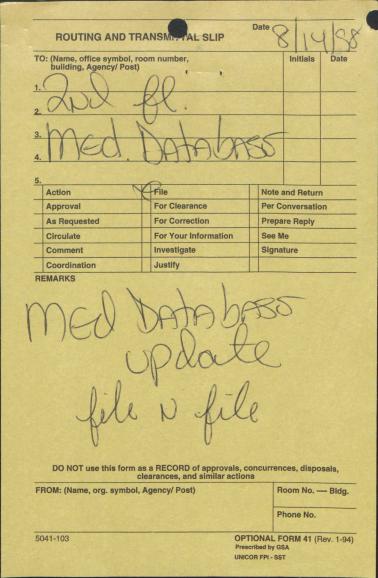 ROUTING AND TRANSMITTAL SLIP
Date 8/14/98
TO: (Name, office symbol, room number, building, Agency/ Post)
Initials
Date
1. 2nd fl.
2.
3. Med. Database
4.
5.
Action
File
Note and Return
Approval
For Clearance
Per Conversation
As Requested
For Correction
Prepare Reply
Circulate
For Your Information
See Me
Comment
Investigate
Signature
Coordination
Justify
REMARKS
Med Database
update
file N file
DO NOT use this form as a RECORD of approvals, concurrences, disposals,
clearances, and similar actions
FROM: (Name, org. symbol, Agency/ Post)
Room No. — Bldg.
Phone No.
5041-103
OPTIONAL FORM 41 (Rev. 1-94)
Prescribed by GSA
UNICOR FPI - SST